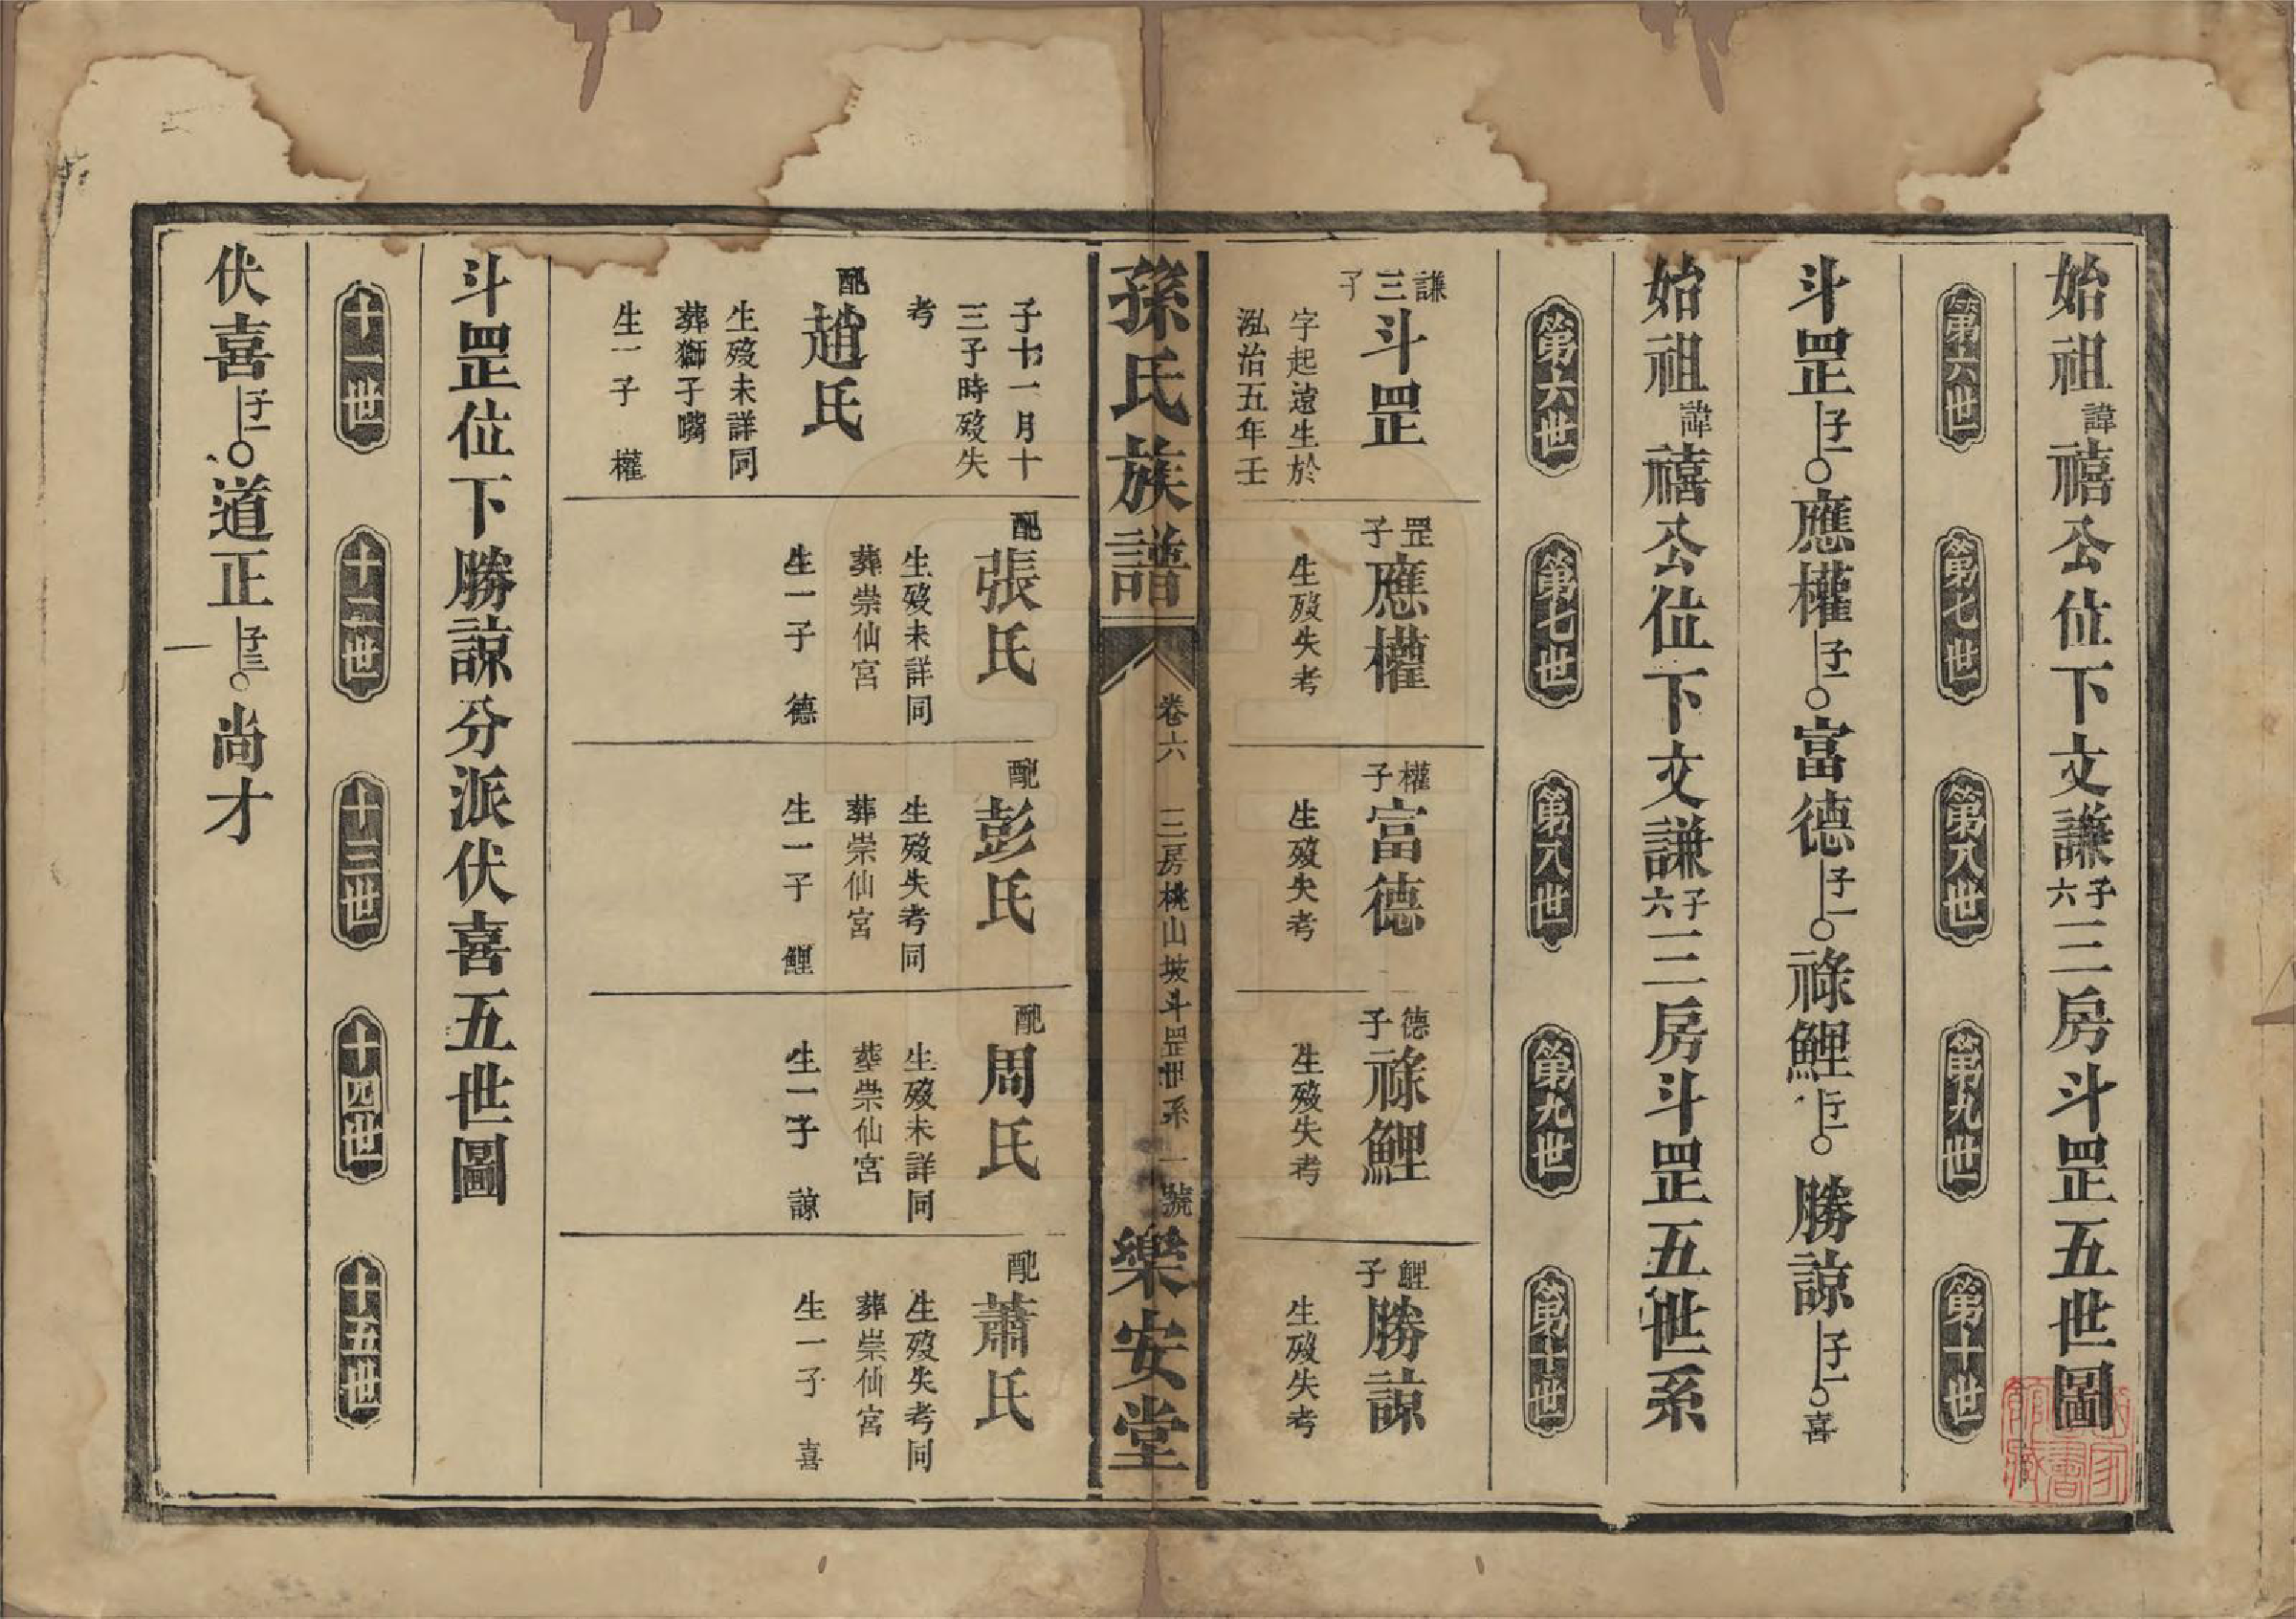 始祖諱禧公位下文謙子六三房斗罡五世圖
第六世 第七世 第八世 第九世 第十世
斗罡子一應權子一富德子一祿鯉子一勝諒子一喜
始祖諱禧公位下文謙子六三房斗罡五世系
第六世 第七世 第八世 第九世 第十世
謙三子斗罡
字起遠生於
泓治五年壬
罡子應權
生歿失考
權子富德
生歿失考
德子祿鯉
生歿失考
鯉子勝諒
生歿失考
孫氏族譜 卷六 三房桃山坡斗罡世系 一號 樂安堂
子十一月十
三子時歿失
考
配趙氏
生歿未詳同
葬獅子嘴
生一子 權
配張氏
生歿未詳同
葬崇仙宮
生一子 德
配彭氏
生歿失考同
葬崇仙宮
生一子 鯉
配周氏
生歿未詳同
葬崇仙宮
生一子 諒
配蕭氏
生歿失考同
葬崇仙宮
生一子 喜
斗罡位下勝諒分派伏喜五世圖
十一世 十二世 十三世 十四世 十五世
伏喜子一道正子三尚才